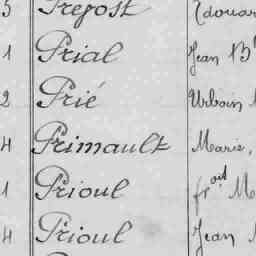 5 Prejost Edouar
1 Prial Jean Bte
2 Prié Urbain
4 Primault Marie,
1 Prioul frois M
4 Prioul Jean